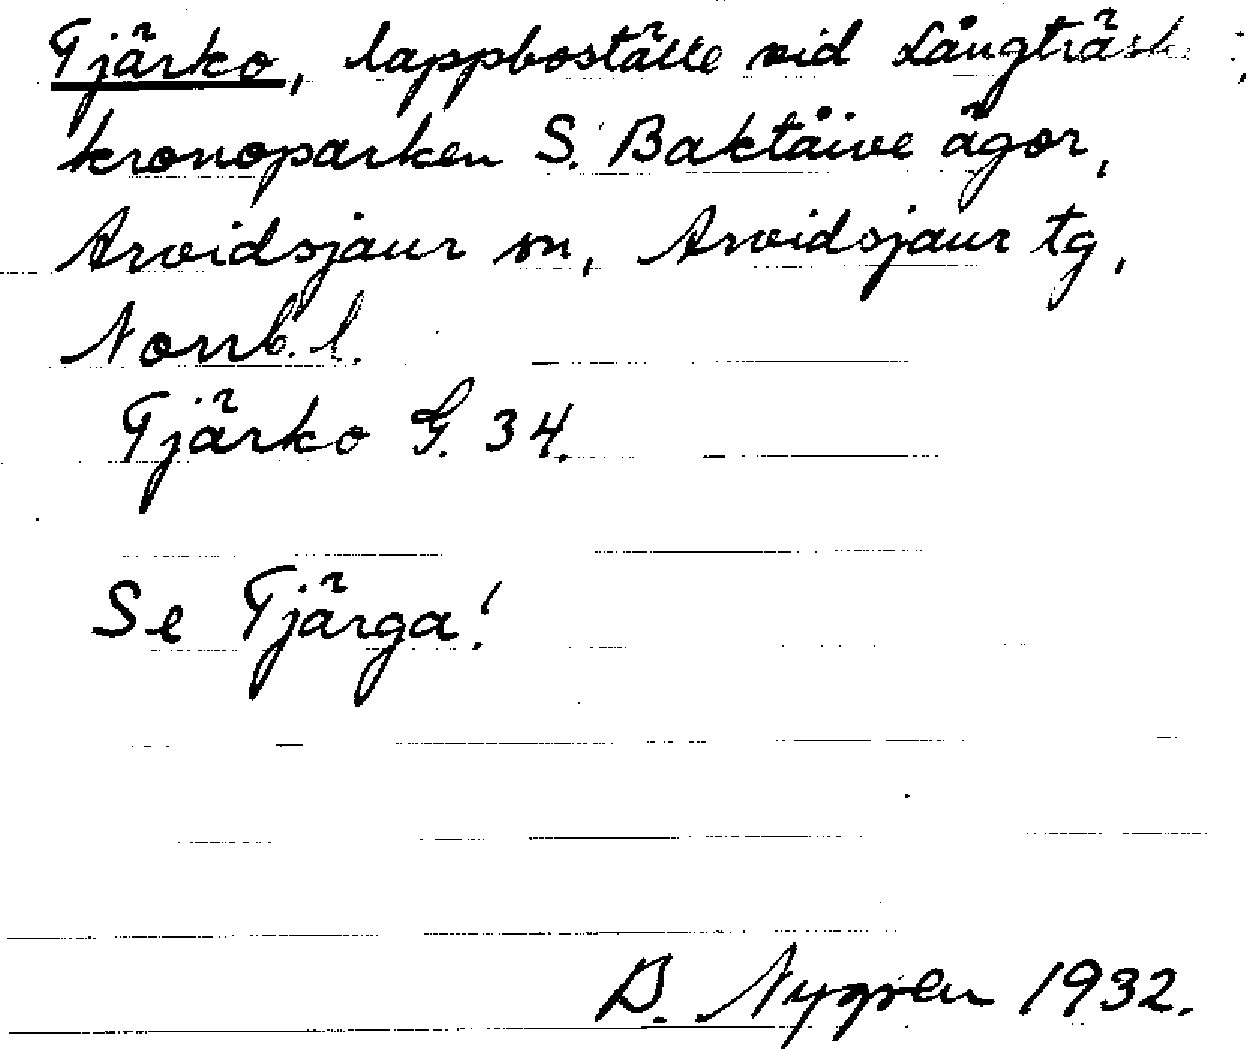 Tjärko, lappboställe vid Långträsk;
kronoparken S. Baktåive ägor,
Arvidsjaur sn, Arvidsjaur tg,
Norrb. l.
Tjärko G. 34.
Se Tjärga!
B. Nygren 1932.